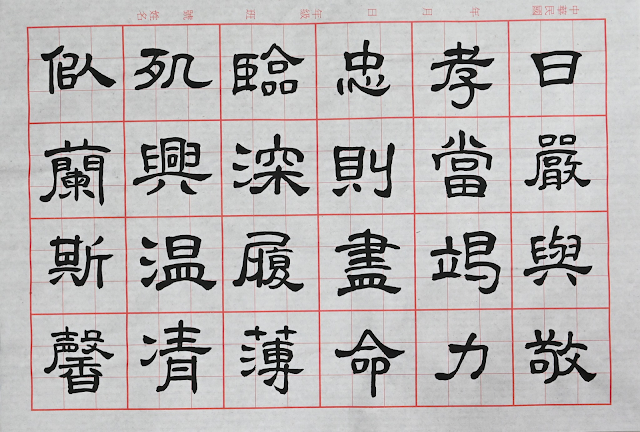 中華民國 年 月 日 年級 班 號姓名
曰嚴與敬
孝當竭力
忠則盡命
臨深履薄
夙興温凊
似蘭斯馨